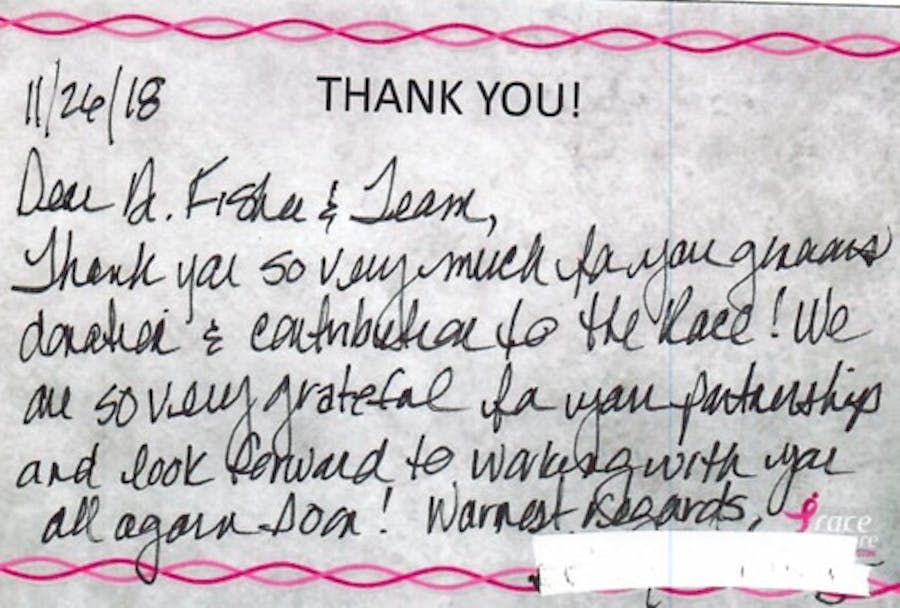 THANK YOU!
11/26/18
Dear Dr. Fisher & Team,
Thank you so very much for your generous
donation & contribution to the Race! We
are so very grateful for your partnerships
and look forward to working with you
all again soon! Warmest Regards,
race